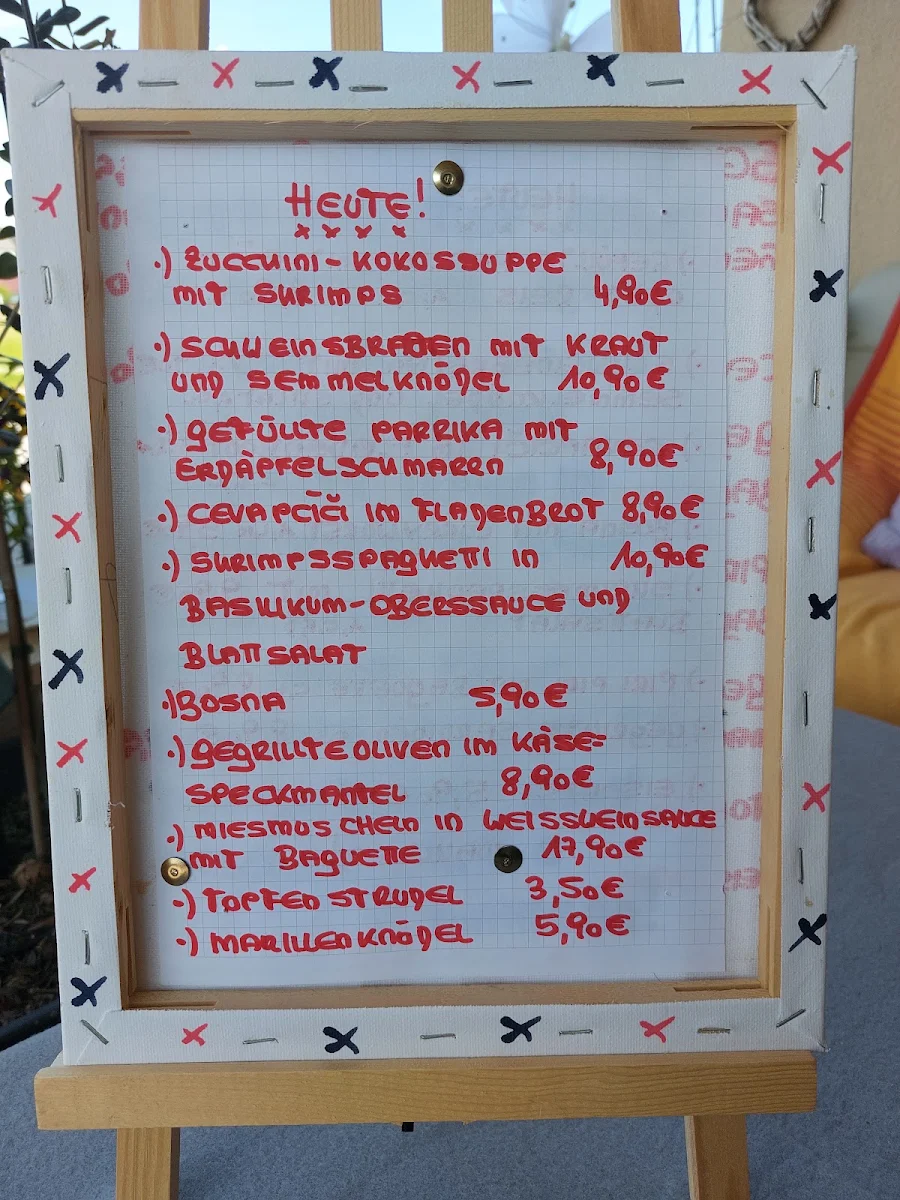 HEUTE!
·) ZUCCHINI-KOKOSSUPPE
MIT SHRIMPS 4,90€
·) SCHWEINSBRATEN MIT KRAUT
UND SEMMELKNÖDEL 10,90€
·) GEFÜLLTE PAPRIKA MIT
ERDÄPFELSCHMARRN 8,90€
·) CEVAPCIČI IM FLADENBROT 8,90€
·) SHRIMPSSPAGHETTI IN 10,90€
BASILIKUM-OBERSSAUCE UND
BLATTSALAT
·) BOSNA 5,90€
·) GEGRILLTE OLIVEN IM KÄSE=
SPECKMANTEL 8,90€
·) MIESMUSCHELN IN WEISSWEINSAUCE
MIT BAGUETTE 17,90€
·) TOPFENSTRUDEL 3,50€
·) MARILLENKNÖDEL 5,90€